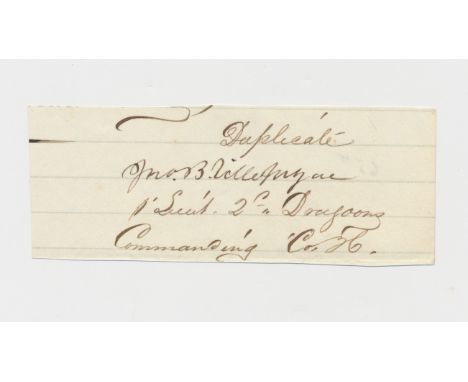 Duplicate
Jno. B. Villepigue
1' Lieut. 2ᵈ Dragoons
Commanding Co. H.